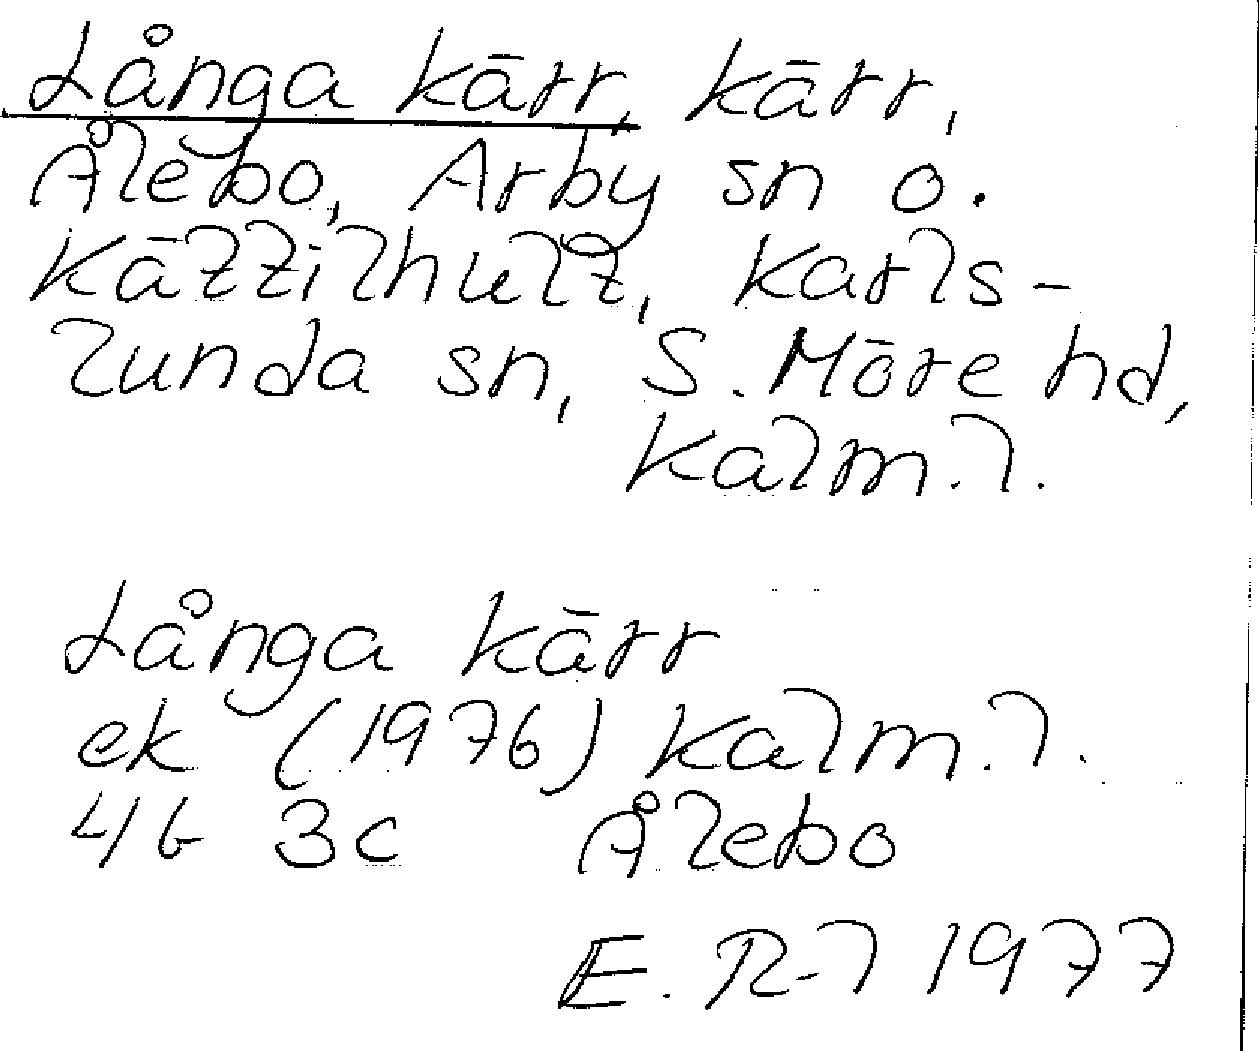 Långa kärr, kärr,
Ålebo, Arby sn o.
Källilhult, Karls-
lunda sn, S. Möre hd,
Kalm. l.
Långa kärr
ek (1976) Kalm. l.
4G 3c Ålebo
E. R-l 1977